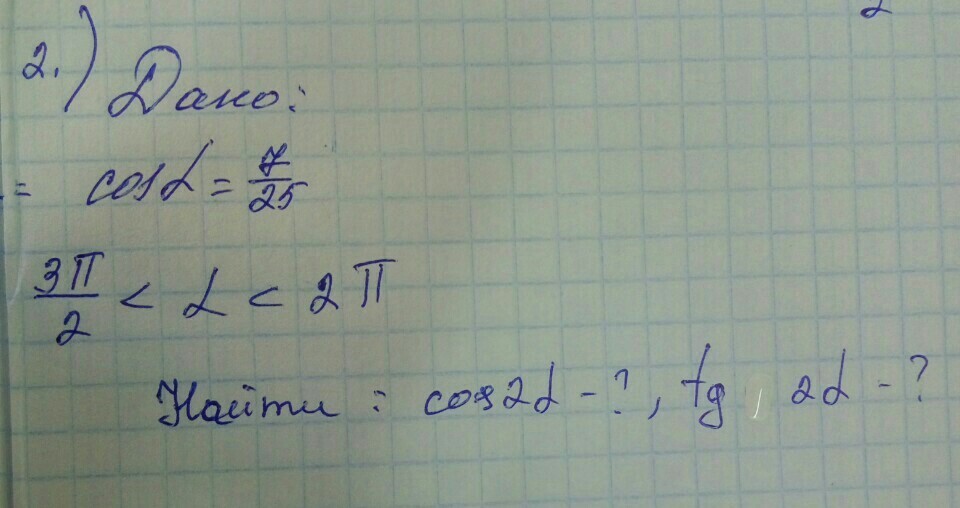 2.) Дано:
= cosα = 7/25
3π/2 < α < 2π
Найти : cos2α - ?, tg, 2α - ?